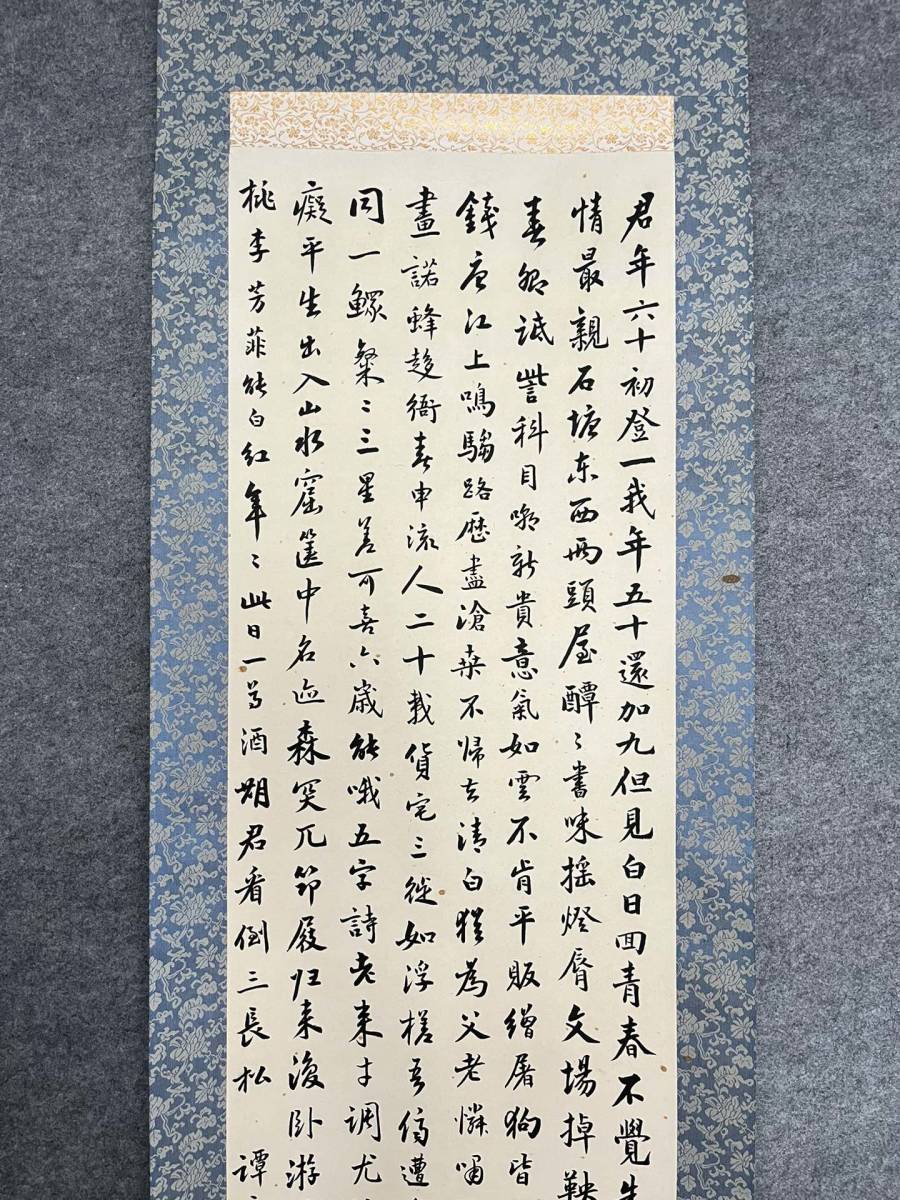 君年六十初登一我年五十還加九但見白日回青春不覺生
情最親石塘东西兩頭屋醰〻書味搖燈脣文場掉鞅
春卿試誓科目嘲新貴意氣如雲不肯平販繒屠狗皆
錢唐江上鳴騶路歷盡滄桑不歸去清白猶為父老憐嘯
畫諾蜂趨衙春申流人二十載貨宅三徙如浮槎吾儕遭
同一鰥粲〻三星差可喜六歲能哦五字詩老來才調尤
癡平生出入山水窟篋中名迹森突兀笻屐归来復卧游
桃李芳菲能白紅年〻此日一尊酒期君看倒三長松 譚